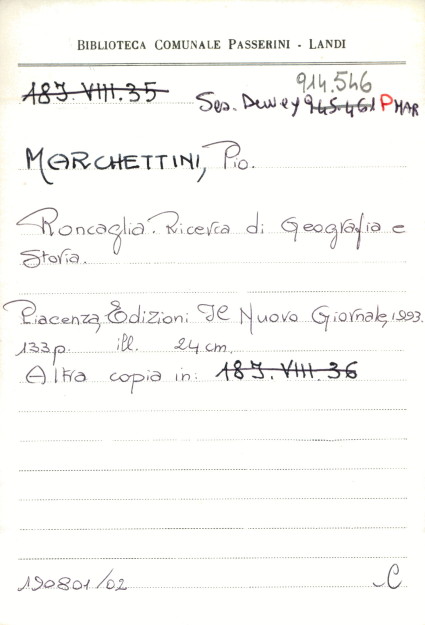 BIBLIOTECA COMUNALE PASSERINI - LANDI
18J.VIII.35
914.546
Sez. Dewey 945.461 P MAR
MARCHETTINI, Pio.
Roncaglia. Ricerca di Geografia e
Storia.
Piacenza, Edizioni Il Nuovo Giornale, 1993.
133 p. ill. 24 cm.
Altra copia in: 18J.VIII.36
190801/02 C